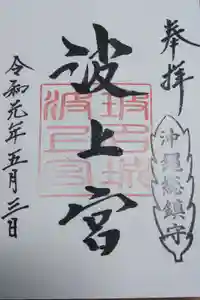 奉拝
沖縄総鎮守
波上宮
令和元年五月三日